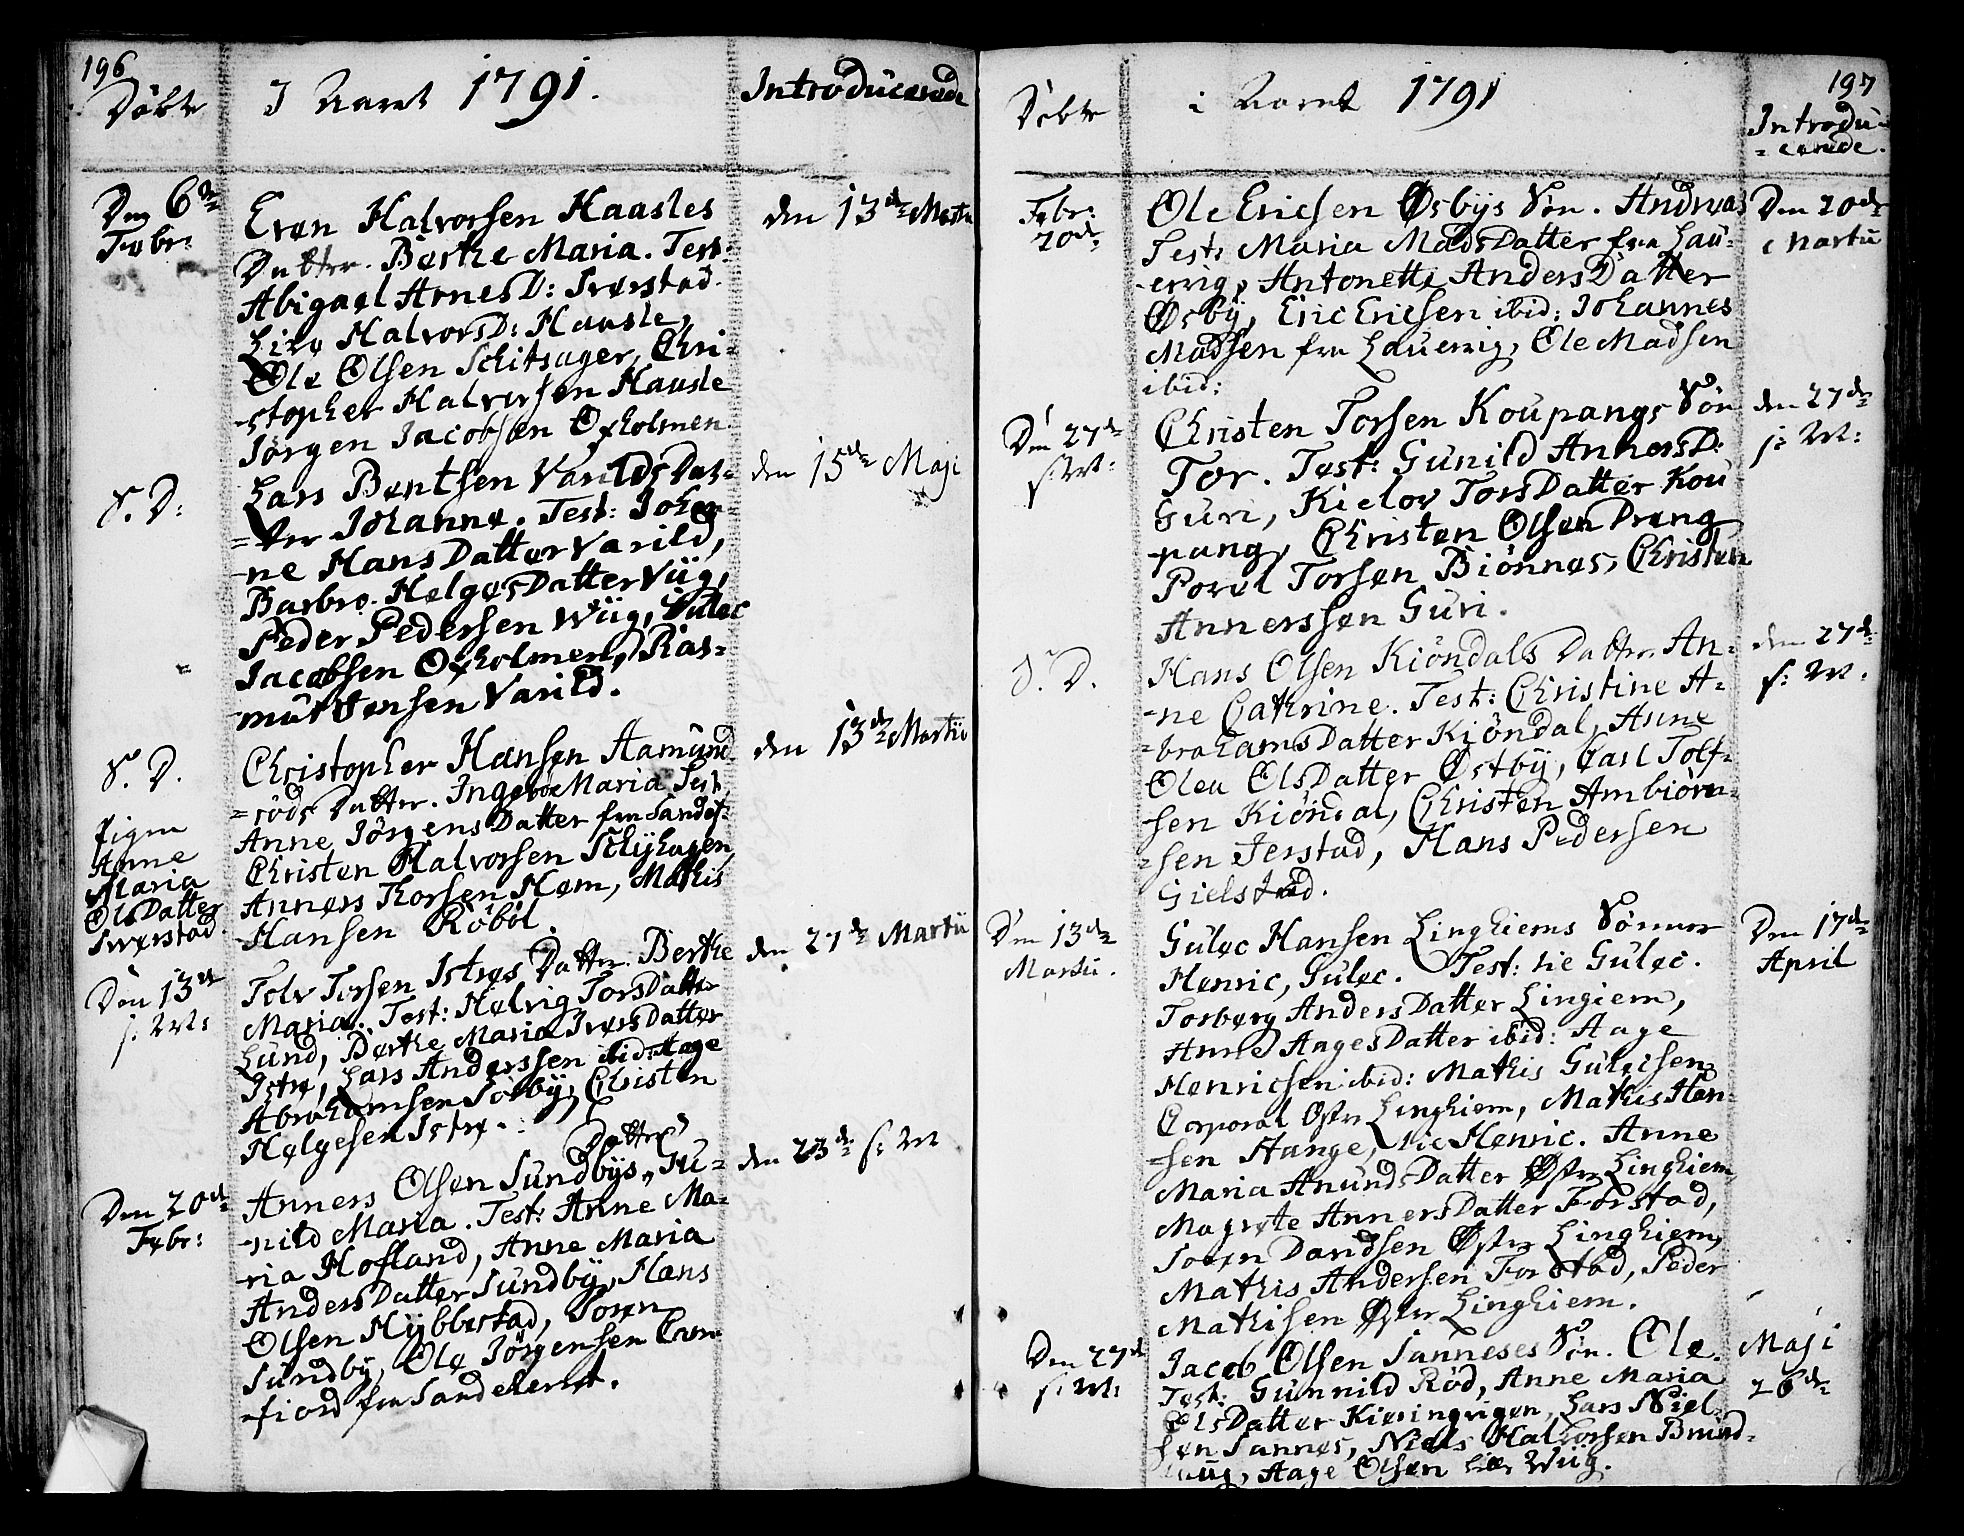 196
Döbte
I Aaret 1791.
Introducerede
Den 6de
Febr:
Even Halvorsen Haasles
Datter. Berthe Maria. Test:
Abigael ArnesD: Iverstad.
Live HalvorsD: Haasle,
Ole Olsen Schitsager, Chri-
-stopher Halvorsen Haasle
Jörgen Jacobsen Oxholmen
den 13de Martii
S. D:
Lars Bentsen Varilds Dat-
-ter Johanne. Test: Johan-
-ne HansDatter Varild,
Barbro HelgesDatter Viig,
Peder Pedersen Wiig, Gulec
Jacobsen Oxholmen, Ras-
-mus Jensen Varild.
den 15de Maji
S. D.
Christopher Hansen Aamund-
-röds Datter. Ingebor Maria Test:
Anne JörgensDatter fra Sandef:
Christen Halvorsen Schijhagen
Anners Thorsen Hem, Mathis
Hansen Röböl.
den 13de Martii
Pigen
Anne
Maria
OlsDatter
Iverstad
Den 13de
s. M:
Tolv Torsen Istres Datter Berthe
Maria. Test: Helvig TorsDatter
Lund, Berthe Maria IversDatter
Istre, Lars Anderssen ibid: Aage
Abrahamsen Sörby, Christen
Helgesen Istre.
den 27de Martii
Den 20de
Febr:
Datter
Anners Olsen Sundbys, Gu-
-nild Maria. Test: Anne Ma-
-ria Hofland, Anne Maria
AndersDatter Sundby, Hans
Olsen Hybbestad, Soren
Sundby, Ole Jörgensen
-fiord fra Sandeherret.
den 23de s: M
197
Döbte
i Aaret 1791
Introdu-
-cerede.
Febr:
20de
Ole Ericsen Østbys Sön. Andreas
Test: Maria MadsDatter fra Lau-
-ervig, Antonette AndersDatter
Østby, Eric Ericsen ibid: Johannes
Madsen fra Lauervig, Ole Madsen
ibid:
Den 20de
Martii
Den 27de
s: M:
Christen Torsen Koupangs Sön
Tor. Test: Gunild AnnersD:
Guri, Kielov TorsDatter Kou
-pang, Christen Olsen Dreng
Povel Torsen Biönnes, Christen
Annerssen Guri.
den 27de
s: M:
S. D.
Hans Olsen Kiöndals Datter An-
-ne Cathrine. Test: Christine A-
-brahamsDatter Kiöndal, Anne
Olea OlsDatter Østby, Carl Tolf-
-sen Kiöndal, Christen Ambiörn-
-sen Jerstad, Hans Pedersen
Gielstad.
den 27de
s: M:
Den 13de
Martii.
Gulec Hansen Linghiems Sönner
Henric, Gulec. Test: tie Gulec.
Torberg AndersDatter Lingiem,
Anne AagesDatter ibid: Aage
Henricsen ibid: Mathis Gulecsen
Corporal Østre Linghiem, Mathis Han-
-sen Hange, tie Henric. Anne
Maria AnundsDatter Østre Linghiem
Magrete AnnersDatter Forstad,
Soren Davidsen Østre Linghiem,
Mathis Andersen Forstad, Peder
Mathisen Østre Linghiem.
Den 17de
April
Den 27de
s: M:
Jacob Olsen Sanneses Sön. Ole.
Test: Gunnild Röd, Anne Maria
OlsDatter Kieringvigen, Lars Niel-
-sen Sannes, Niels Halvorsen Brund-
Aage Olsen Wiig.
Maji
26de